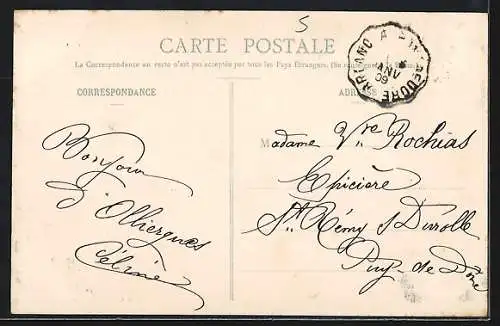 5
CARTE POSTALE
La Correspondance au recto n'est pas acceptée par tous les Pays Etrangers.
CORRESPONDANCE
ADRESSE
ARLANC A
JANV
09
Bonjour
d'Olliergues
Céline
Madame Vve Rochias
Epicière
St Rémy s Durolle
Puy-de Dôme